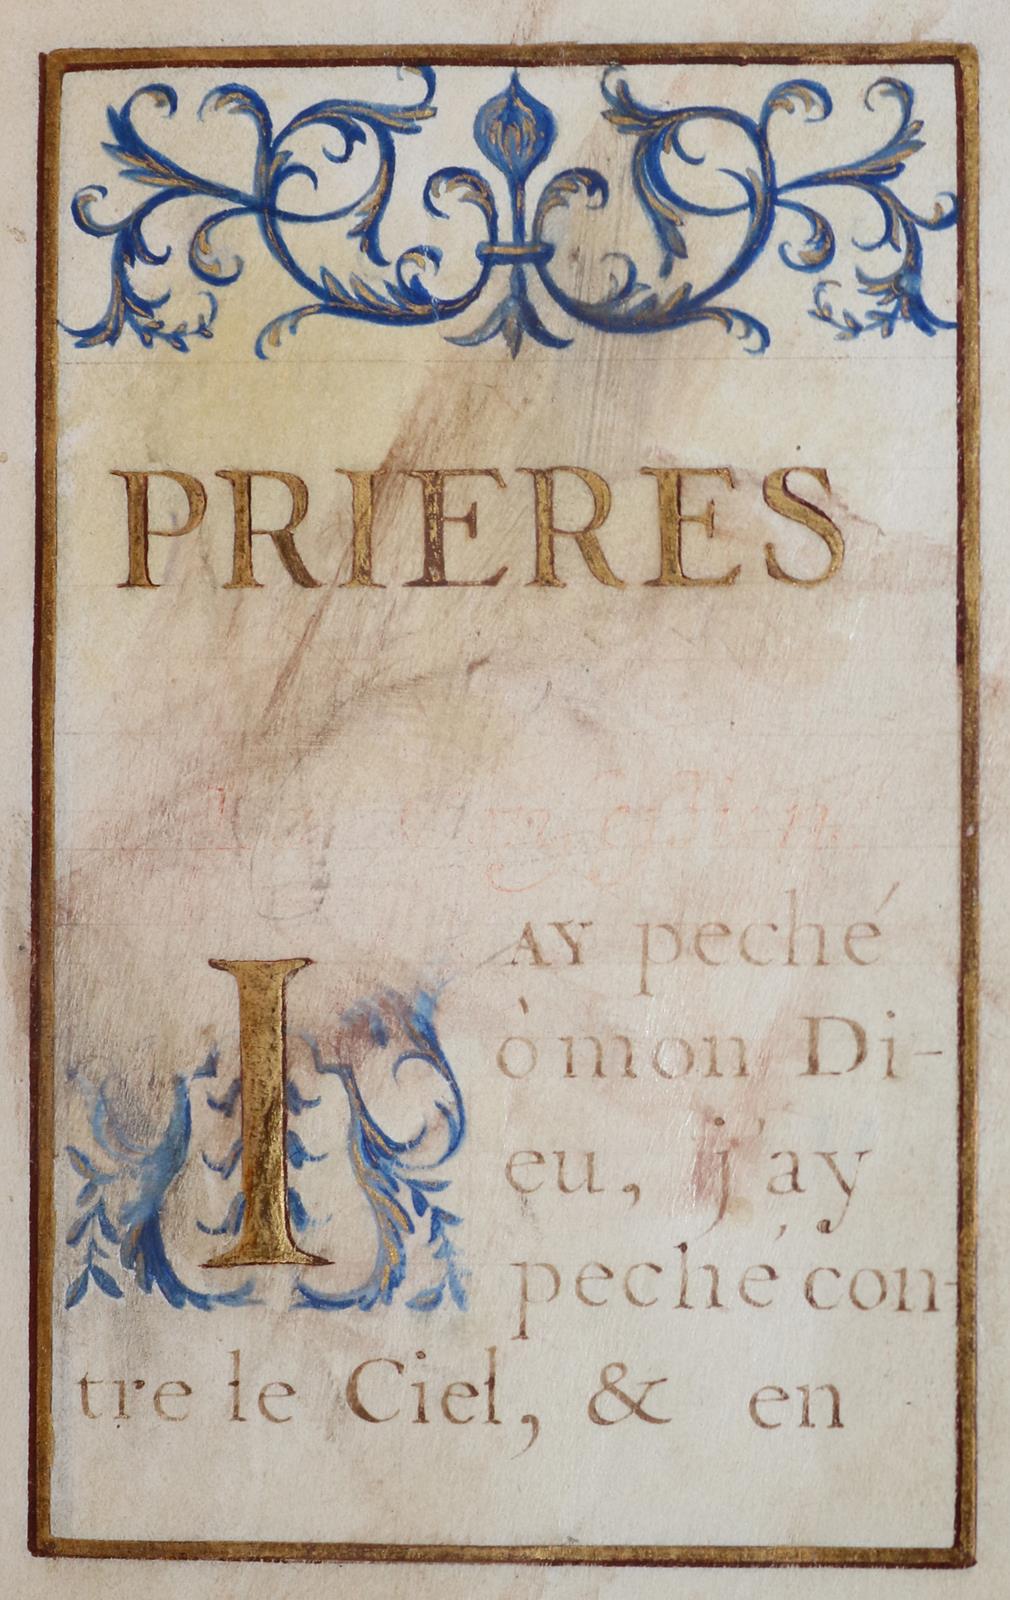 PRIERES
IAY peché
ò mon Di-
eu, j'ay
peché con-
tre le Ciel, & en